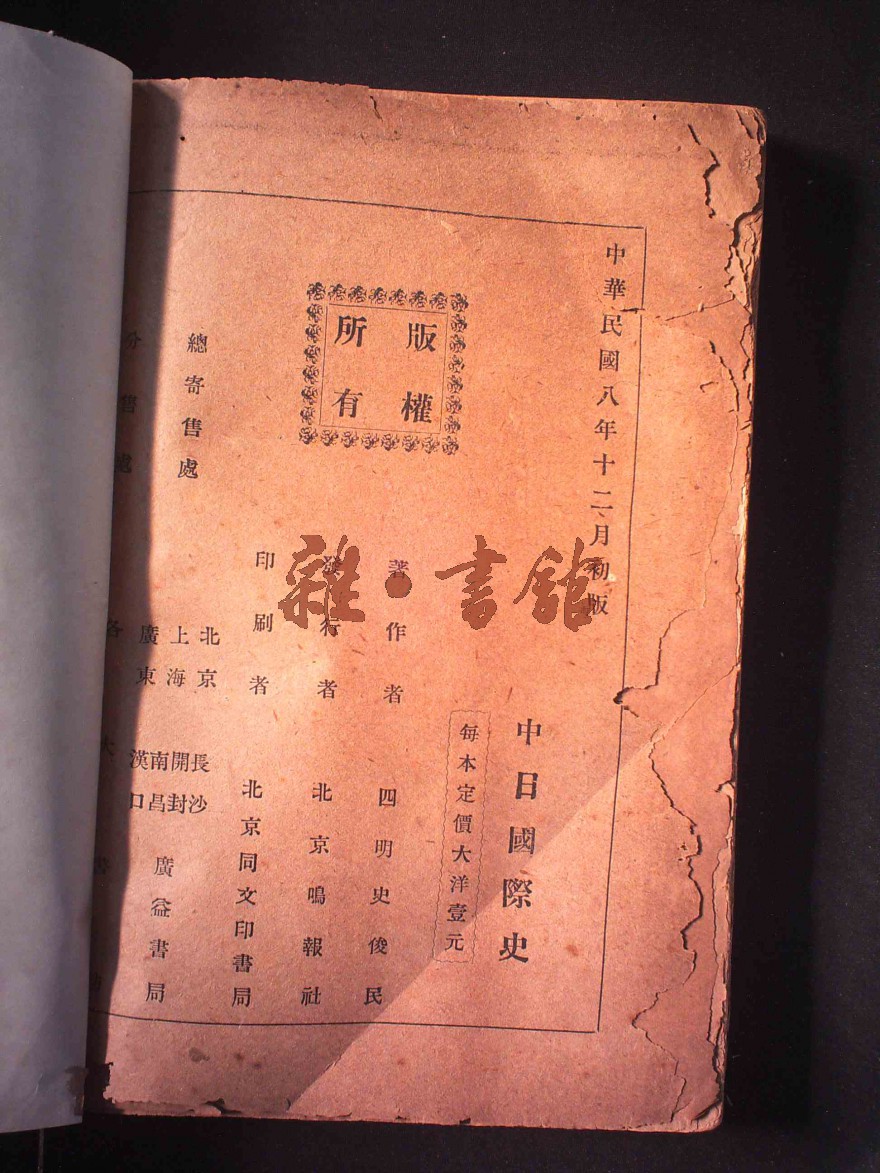 中華民國八年十二月初版
中日國際史
每本定價大洋壹元
版權
所有
著作者 四明史俊民
發行者 北京鳴報社
印刷者 北京同文印書局
總寄售處
北京
上海
廣東
長沙
開封
南昌
漢口
廣益書局
分售處
各大書
雜·書館